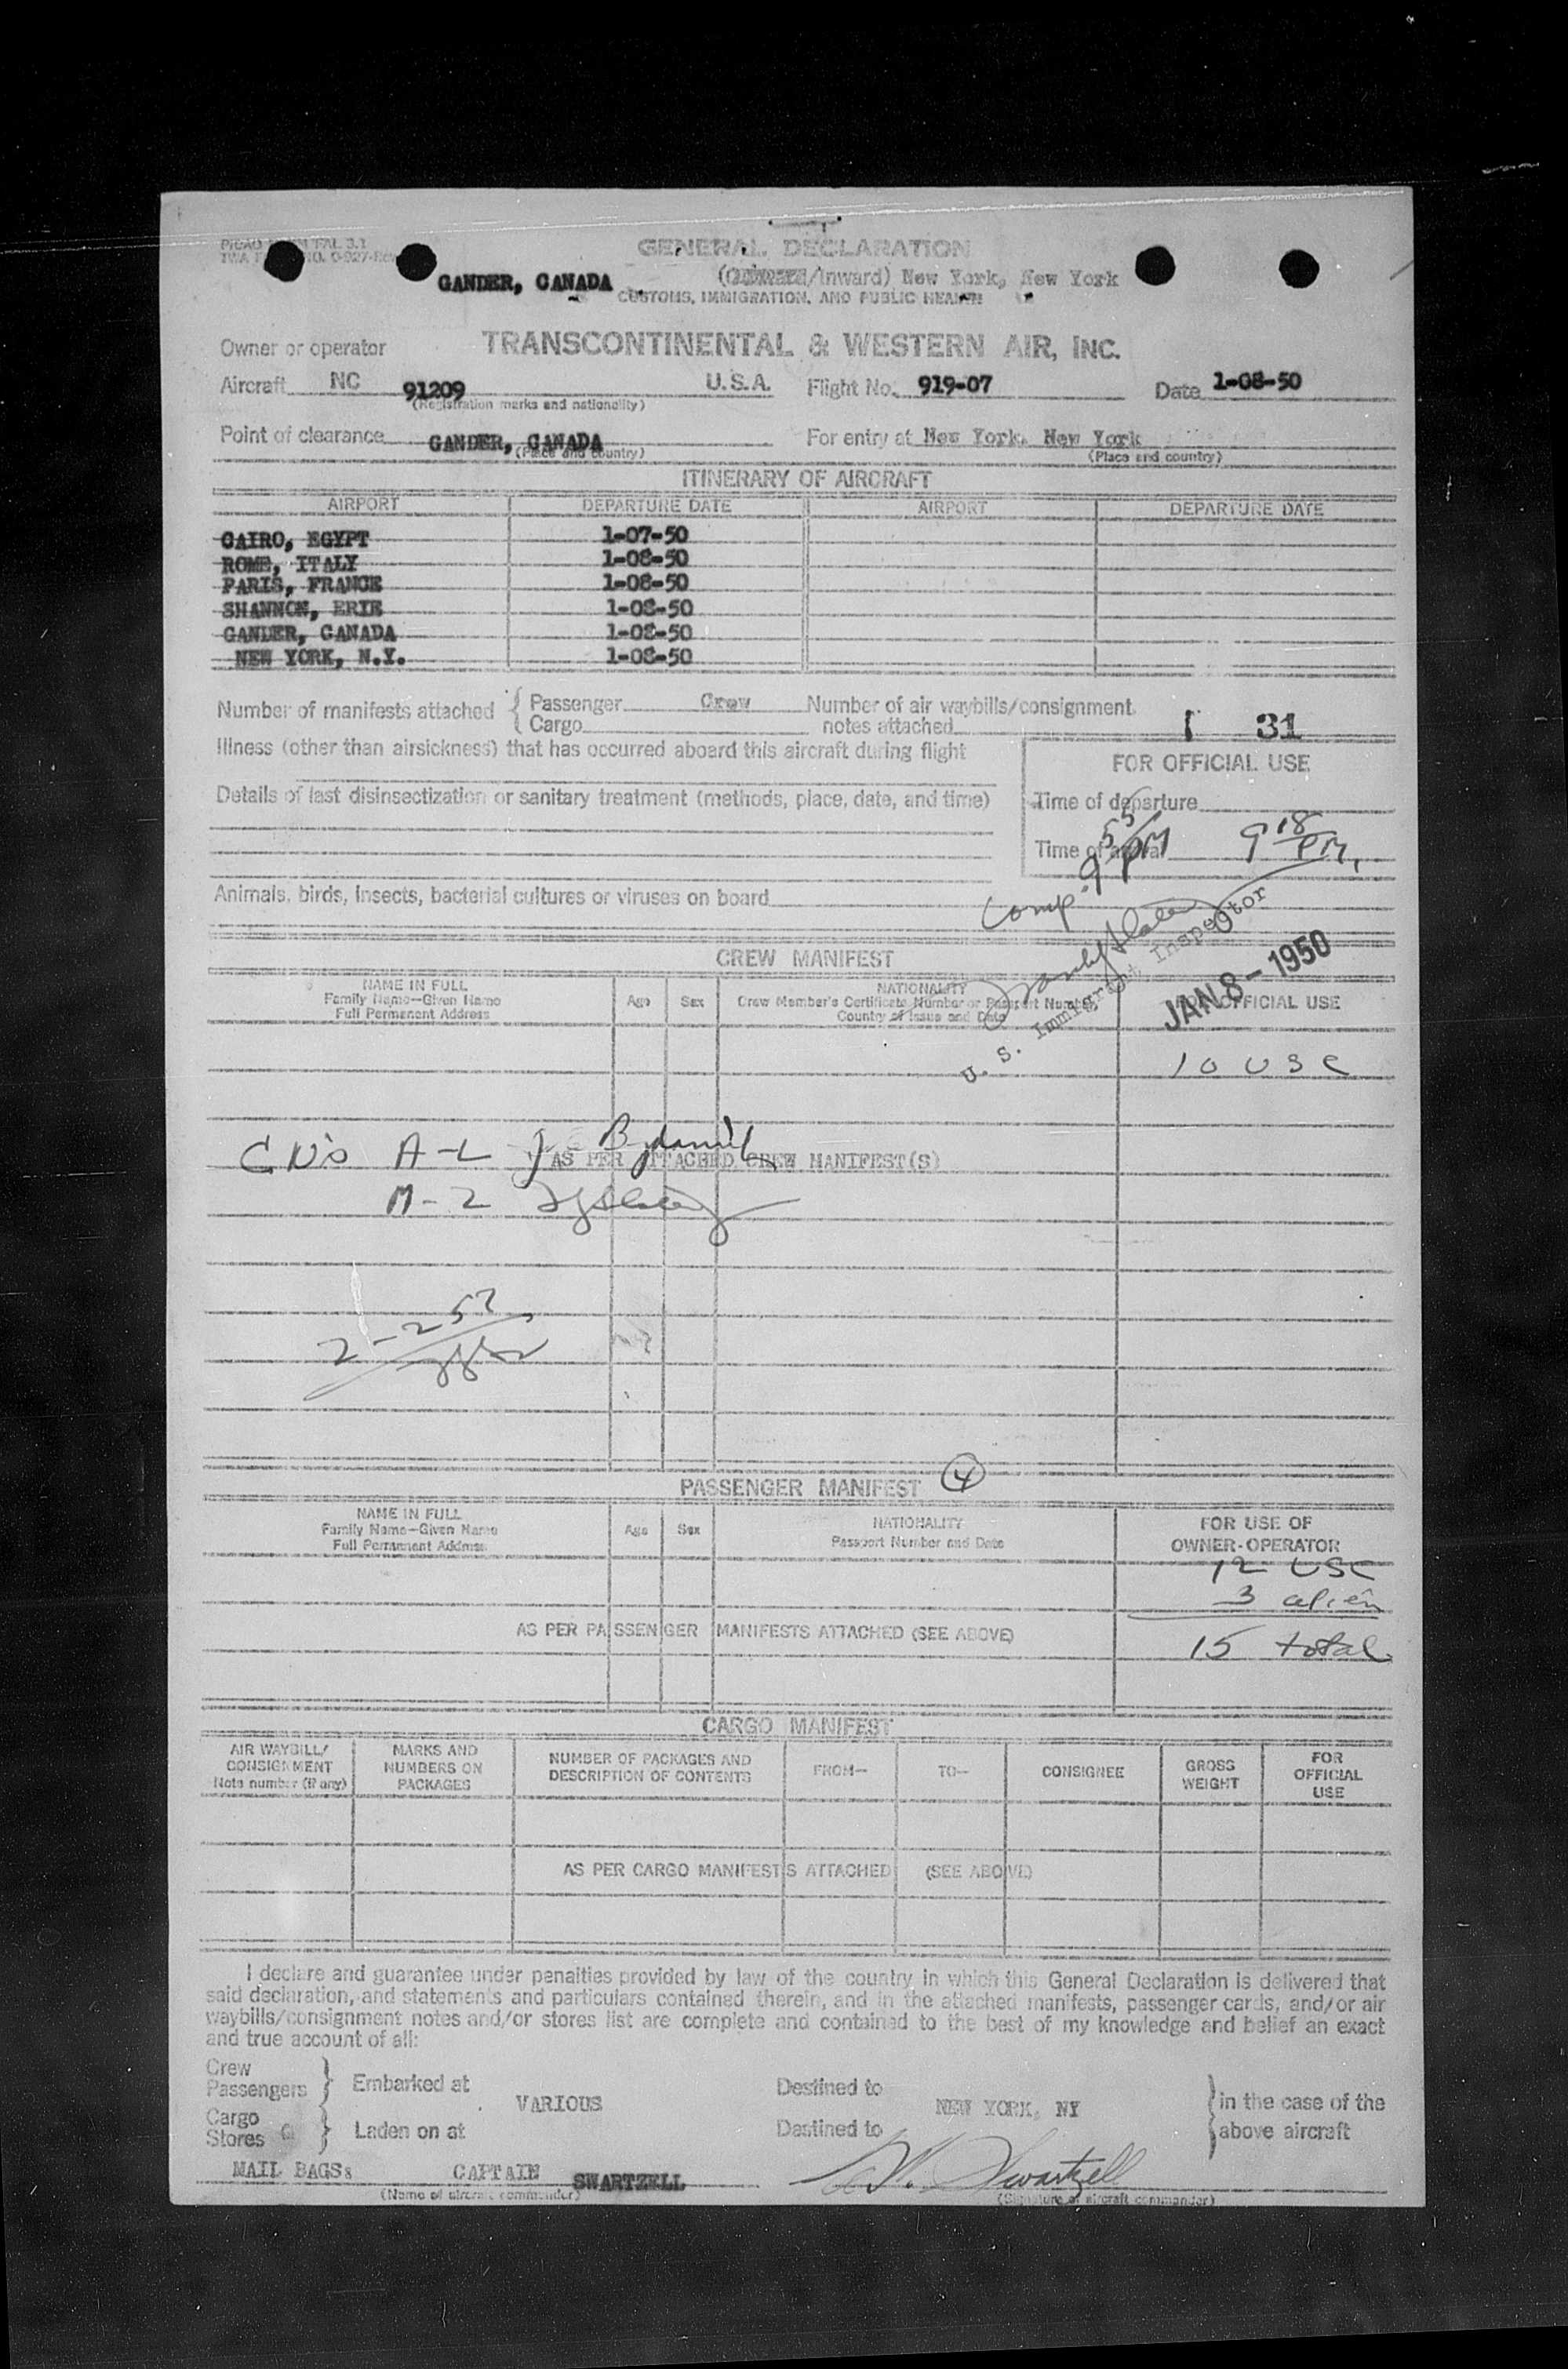 GENERAL DECLARATION
GANDER, CANADA (Outward/Inward) New York, New York
CUSTOMS, IMMIGRATION, AND PUBLIC HEALTH
Owner or operator TRANSCONTINENTAL & WESTERN AIR, INC.
Aircraft NC 91209 U.S.A. Flight No. 919-07 Date 1-08-50
(Registration marks and nationality)
Point of clearance GANDER, CANADA For entry at New York, New York
(Place and country) (Place and country)
ITINERARY OF AIRCRAFT
AIRPORT DEPARTURE DATE AIRPORT DEPARTURE DATE
CAIRO, EGYPT 1-07-50
ROME, ITALY 1-08-50
PARIS, FRANCE 1-08-50
SHANNON, ERIE 1-08-50
GANDER, CANADA 1-08-50
NEW YORK, N.Y. 1-08-50
Number of manifests attached { Passenger Crew Number of air waybills/consignment
Cargo notes attached
1 31
Illness (other than airsickness) that has occurred aboard this aircraft during flight
FOR OFFICIAL USE
Details of last disinsectization or sanitary treatment (methods, place, date, and time)
Time of departure
Time of arrival 9 18 PM.
Comp. 9 55 PM
Animals, birds, insects, bacterial cultures or viruses on board
U. S. Immigrant Inspector
JAN 8 - 1950
CREW MANIFEST
NAME IN FULL
Family Name—Given Name
Full Permanent Address
Age Sex
NATIONALITY
Crew Member's Certificate Number or Passport Number,
Country of Issue and Date
FOR OFFICIAL USE
10 USC
A-L
AS PER ATTACHED CREW MANIFEST(S)
M-Z
2-252
PASSENGER MANIFEST 4
NAME IN FULL
Family Name—Given Name
Full Permanent Address
Age Sex
NATIONALITY
Passport Number and Date
FOR USE OF
OWNER-OPERATOR
12 USC
3 alien
AS PER PASSENGER MANIFESTS ATTACHED (SEE ABOVE)
15 total
CARGO MANIFEST
AIR WAYBILL/
CONSIGNMENT
Note number (if any)
MARKS AND
NUMBERS ON
PACKAGES
NUMBER OF PACKAGES AND
DESCRIPTION OF CONTENTS
FROM—
TO—
CONSIGNEE
GROSS
WEIGHT
FOR
OFFICIAL
USE
AS PER CARGO MANIFESTS ATTACHED (SEE ABOVE)
I declare and guarantee under penalties provided by law of the country in which this General Declaration is delivered that
said declaration, and statements and particulars contained therein, and in the attached manifests, passenger cards, and/or air
waybills/consignment notes and/or stores list are complete and contained to the best of my knowledge and belief an exact
and true account of all:
Crew
Passengers } Embarked at VARIOUS Destined to NEW YORK, NY } in the case of the
Cargo
Stores } Laden on at Destined to above aircraft
MAIL BAGS: CAPTAIN SWARTZELL Swartzell
(Name of aircraft commander) (Signature of aircraft commander)